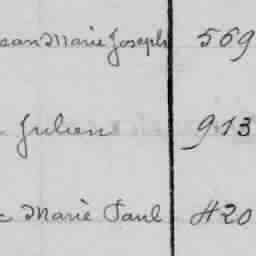 Jean Marie Joseph 569
Julien 913
Marie Paul 420